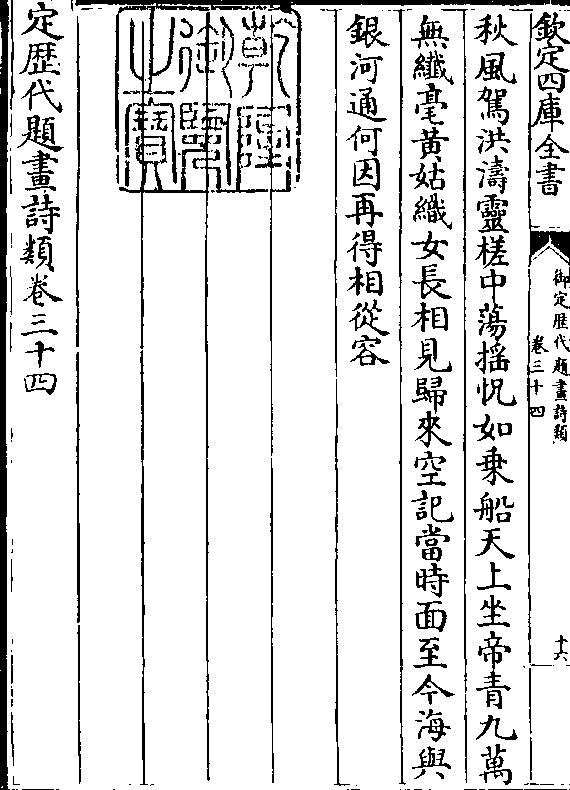 欽定四庫全書
御定歴代題畫詩類
卷三十四
十六
秋風駕洪濤靈槎中蕩揺怳如乗船天上坐帝青九萬
無纖毫黃姑織女長相見歸來空記當時面至今海與
銀河通何因再得相從容
乾隆御覽之寶
定歴代題畫詩類卷三十四